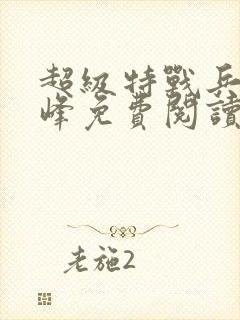 超級特戰兵
峰免費閱讀
老施2